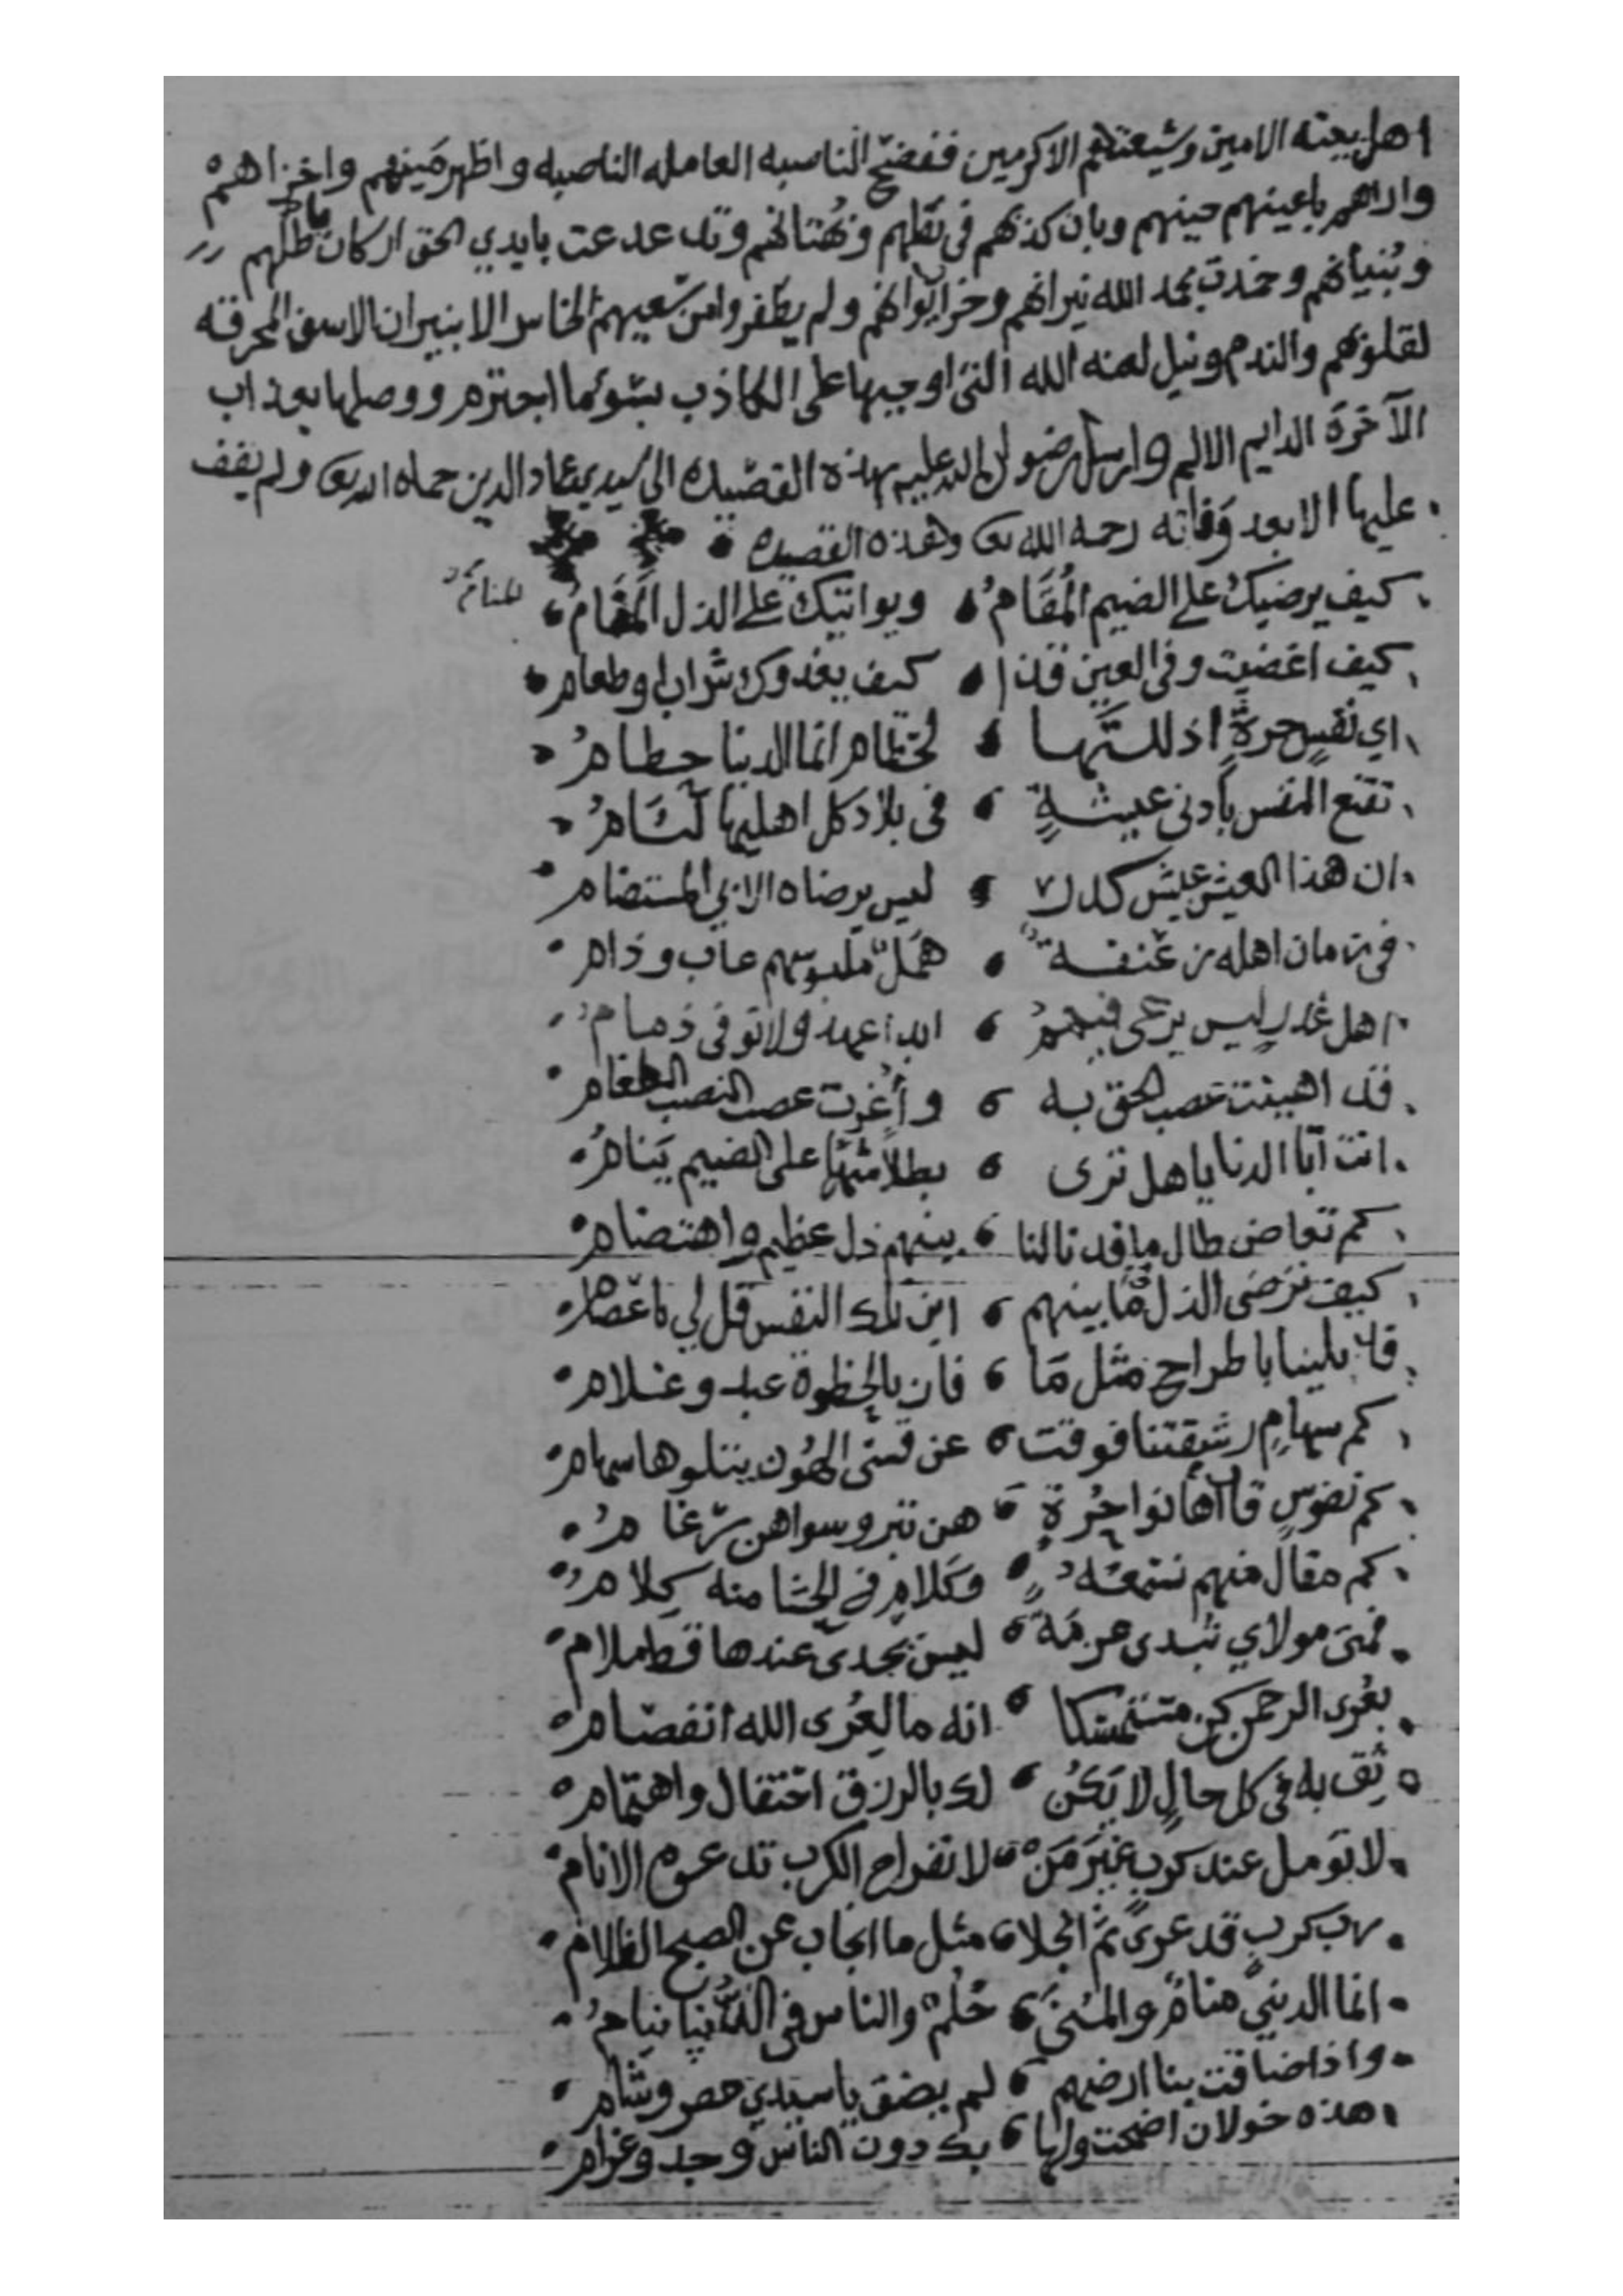 اهل بيته الامين وشيعتهم الاكرمين ففضح الناسبه العامله الناصبه واظهر مينهم واخزاهم
واراهم باعينهم حينهم وبان كذبهم في نقلهم وبهتانهم وتدعدعت بايدي الحق اركان باطلهم
وبنيانهم وخمدت بحمد الله نيرانهم وخر ايوانهم ولم يظفروا من سعيهم الخاسر الا بنيران الاسف المحرقه
لقلوبهم والندم ونيل لعنه الله التي اوجبها على الكاذب بسوء ما اجترم ووصلها بعذاب
الآخرة الدايم الاليم وارسل رضوان الله عليه بهذه القصيده الى سيدي عماد الدين حماه الله تعالى ولم يقف
عليها الا بعد وفاته رحمه الله تعالى وهذه القصيده
كيف يرضيك على الضيم المُقَامُ ويواتيك على الذل المَقَامُ المنامُ
كيف اغضيت وفي العين قذا كيف يغذوك شراب او طعام
اي نفسٍ حرةٍ اذللتَها لحطام انما الدنيا حطامُ
تقنع النفس بأدنى عيشةٍ في بلاد كل اهليها لئامُ
ان هذا العيش عيش كدر ليس يرضاه الابي المستضام
في زمان اهله زعنفة هَمَلٌ ملبوسهم عاب وذام
اهل غدرٍ ليس يرعى فيهمُ ابدا عهد ولا توفى ذمامُ
قد اهينت عصب الحق به وأعزت عصب النصب الطغام
انت آبا الدنايا هل ترى بطلاً شهماً على الضيم ينامُ
كم تغاضى طال ما قد نالنا بينهم ذل عظيم واهتضام
كيف ترضى الذل ما بينهم اين تلك النفس قل لي يا عصام
قد بلينا باطراح مثل ما فاز بالحظوة عبد وغلام
كم سهامٍ رشقتنا فوقت عن قسي الهُون يتلوها سهام
كم نفوسٍ قد أهانوا حُرة هن تبر وسواهن رغامُ
كم مقال منهم نسمعه وكلامٍ في الحشا منه كِلامُ
فمتى مولاي تبدي عزمة ليس يجدي عندها قط ملام
بعُرى الرحمن كن متمسكا انه ما لعُرى الله انفصام
ثق به في كل حالٍ لا يكن لك بالرزق احتفال واهتمام
لا تؤمل عند كربٍ غيرَ مَن لانفراج الكرب تدعوه الانام
رب كربٍ قد عرى ثمَّ انجلا مثل ما انجاب عن الصبح الظلام
انما الدنيى منامٌ والمنى حُلُمٌ والناس في الدنيا نيامُ
واذا ضاقت بنا ارضهم لم يضق يا سيدي مصر وشام
هذه خولان اضحت ولها بك دون الناس وجد وغرام